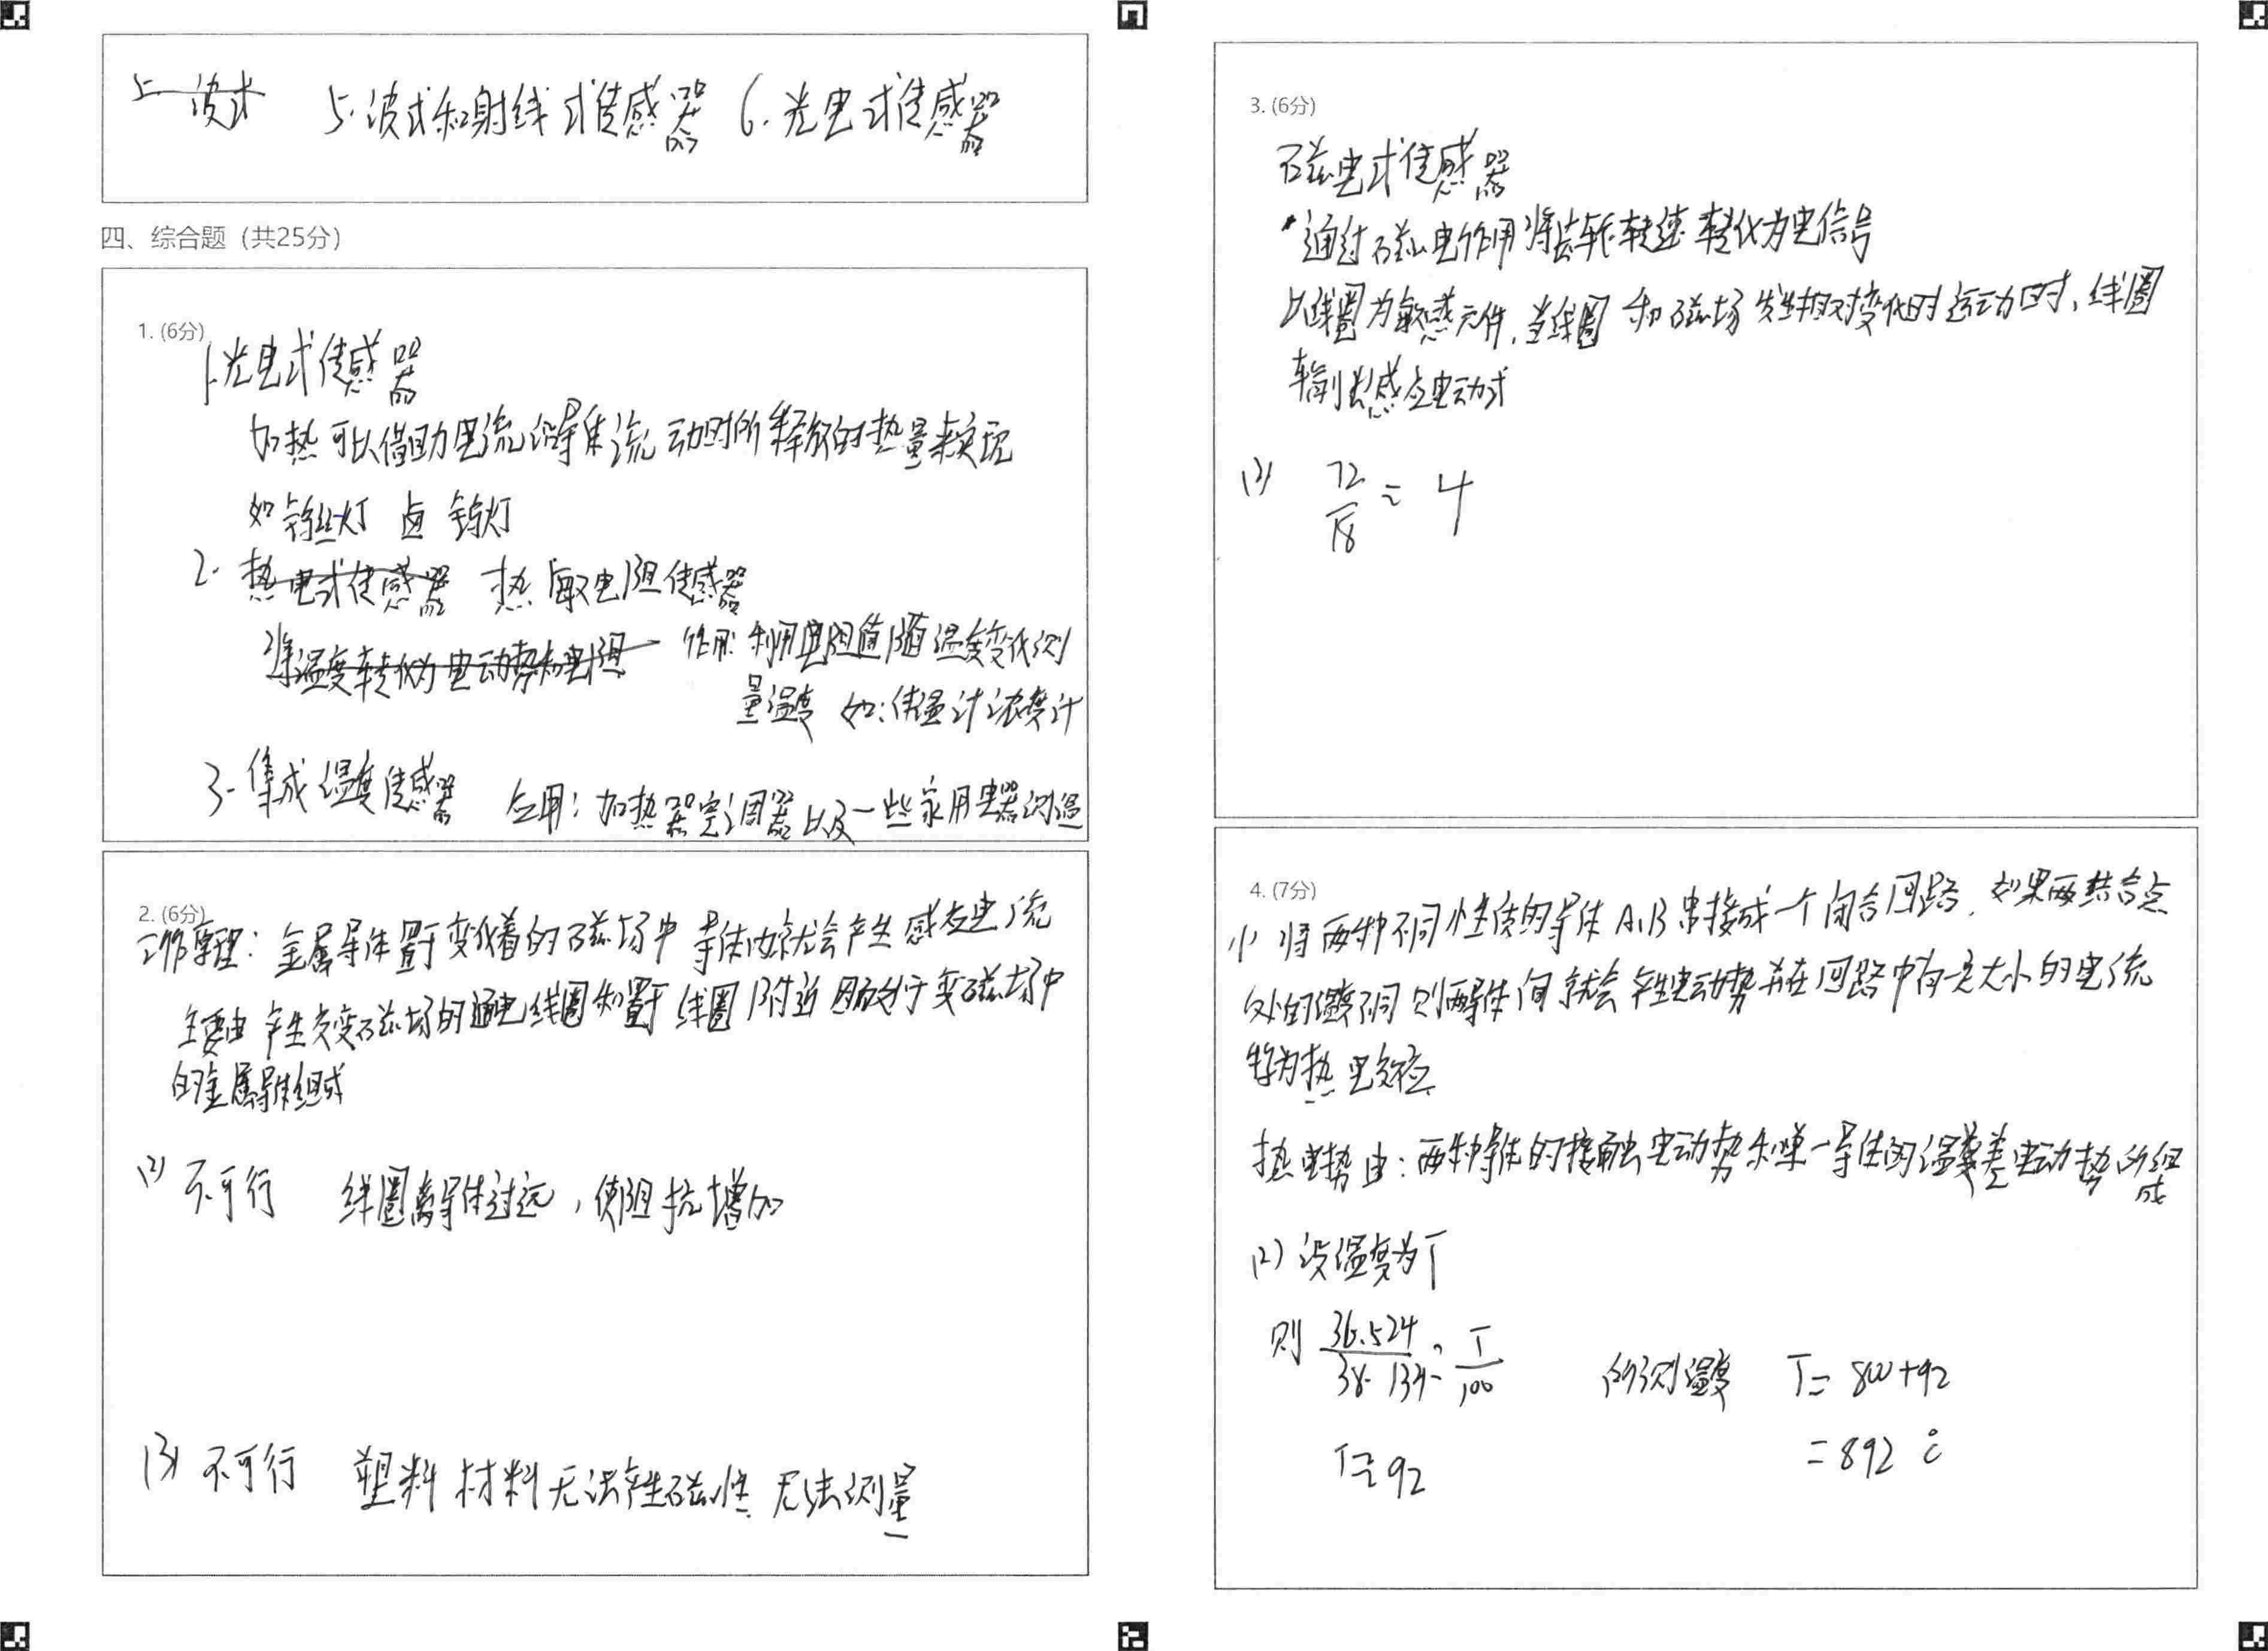 5. 波式 5.波式和射线式传感器 6.光电式传感器
四、综合题（共25分）
1. (6分)
1.光电式传感器
加热可以借助电流沿导体流动时所释放的热量来实现
如钨丝灯 卤钨灯
2. 热电式传感器 热敏电阻传感器
将温度转化为电动势和电阻 作用:利用电阻值随温度变化测
量温度 如:体温计 浓度计
3.集成温度传感器 应用:加热器空调器以及一些家用电器测温
2. (6分)
工作原理:金属导体置于变化着的磁场中 导体内就会产生感应电流
主要由产生交变磁场的通电线圈和置于线圈附近因而处于变磁场中
的金属导体组成
(2) 不可行 线圈离导体过远,使阻抗增加
(3) 不可行 塑料材料无法产生磁性 无法测量
3. (6分)
磁电式传感器
通过磁电作用将齿轮转速转化为电信号
以线圈为敏感元件,当线圈和磁场发生相对变化时运动时,线圈
输出感应电动式
(2) 72/18 = 4
4. (7分)
(1) 将两种不同性质的导体A,B串接成一个闭合回路,如果两结合点
处的温度不同 则两导体间就会产生电动势并在回路中有一定大小的电流
称为热电效应
热电势由:两种导体的接触电动势和单一导体的温差电动势所组成
(2) 设温度为T
则 36.524/38.134 = T/100 所测温度 T = 800+92
T = 92 = 892 ℃